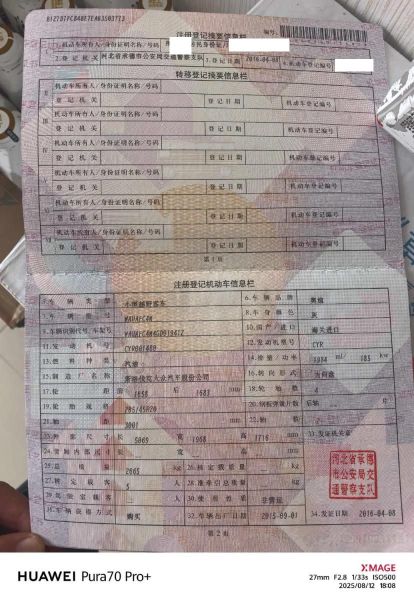 注册登记摘要信息栏
编号:
1.机动车所有人/身份证明名称/号码
居民身份证/
2.登记机关 河北省承德市公安局交通警察支队 3.登记日期 2016-04-08 4.机动车登记编号
转移登记摘要信息栏
机动车所有人/身份证明名称/号码
登记机关 登记日期 机动车登记编号
机动车所有人/身份证明名称/号码
登记机关 登记日期 机动车登记编号
机动车所有人/身份证明名称/号码
登记机关 登记日期 机动车登记编号
机动车所有人/身份证明名称/号码
登记机关 登记日期 机动车登记编号
机动车所有人/身份证明名称/号码
登记机关 登记日期 机动车登记编号
机动车所有人/身份证明名称/号码
登记机关 登记日期 机动车登记编号
第1页
注册登记机动车信息栏
5.车辆类型 小型越野客车 6.车辆品牌 奥迪
7.车辆型号 8.车身颜色 灰
9.车辆识别代号/车架号 10.国产/进口 海关进口
11.发动机号 12.发动机型号 CYR
13.燃料种类 汽油 14.排量/功率 1984 ml/ 185 kw
15.制造厂名称 16.转向形式 方向盘
17.轮距 前 1658 后 1683 mm 18.轮胎数 4
19.轮胎规格 20.钢板弹簧片数 后轴 片
21.轴距 3001 mm 22.轴数
23.外廓尺寸 长 5069 宽 1968 高 1716 mm 33.发证机关章
24.货厢内部尺寸 长 宽 高 mm
25.总质量 2665 kg 26.核定载质量 kg
27.核定载客 5 人 28.准牵引总质量 kg
29.驾驶室载客 人 30.使用性质 非营运
31.车辆获得方式 购买 32.车辆出厂日期 2015-09-01 34.发证日期 2016-04-08
河北省承德
市公安局交
通警察支队
第2页
HUAWEI Pura70 Pro+
XMAGE
27mm F2.8 1/33s ISO500
2025/08/12 18:08